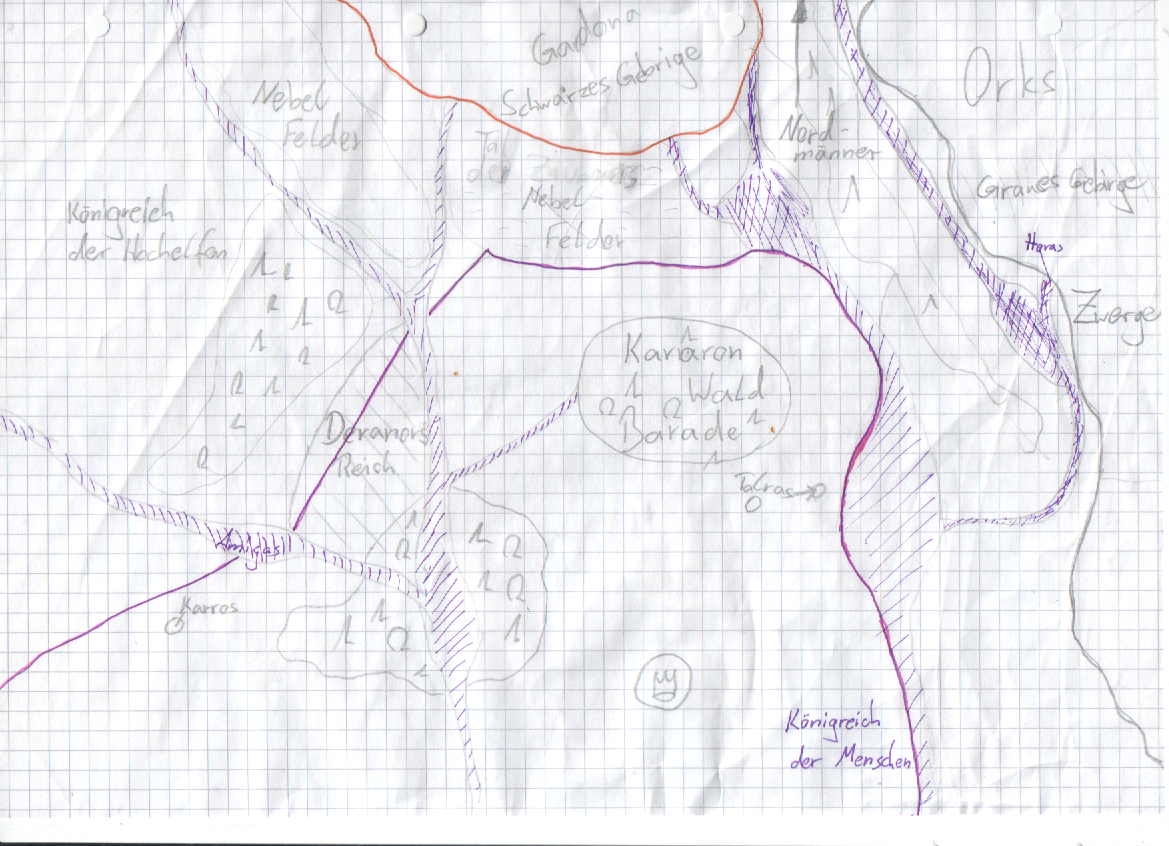 Gardona
Schwarzes Gebirige
Orks
Nebel
Felder
Tal
der Zauberers
Nord-
männer
Graues Gebirge
Nebel
Felder
Königreich
der Hochelfen
Haras
Zwerge
Kararon
Wald
Barade
Deranors
Reich
Talras
Amigas
Karras
Königreich
der Menschen